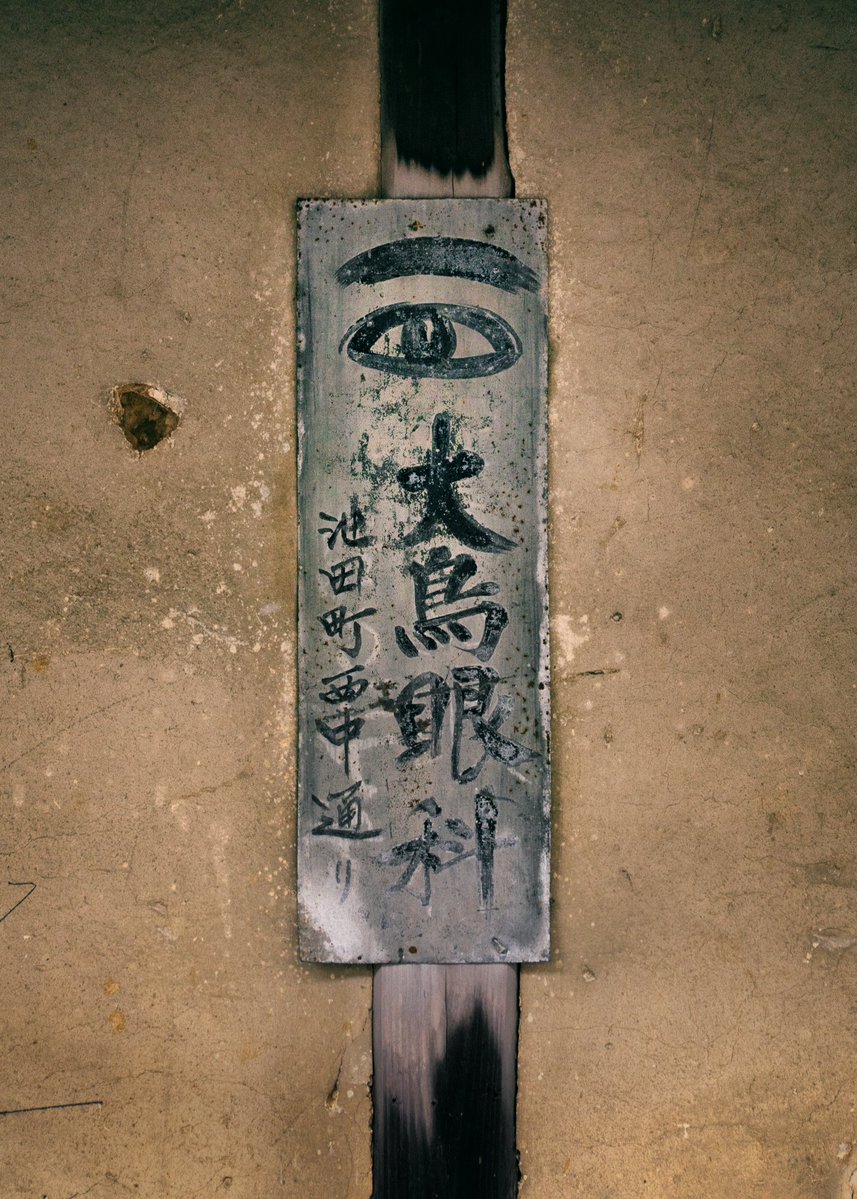 大鳥眼科
池田町西中通り